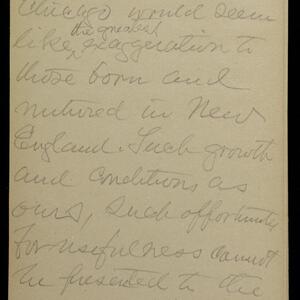 Chicago would seem
like the greatest exaggeration to
those born and
nutured in New
England. Such growth
and conditions as
ours, such opportunity
for usefulness cannot
be presented to the